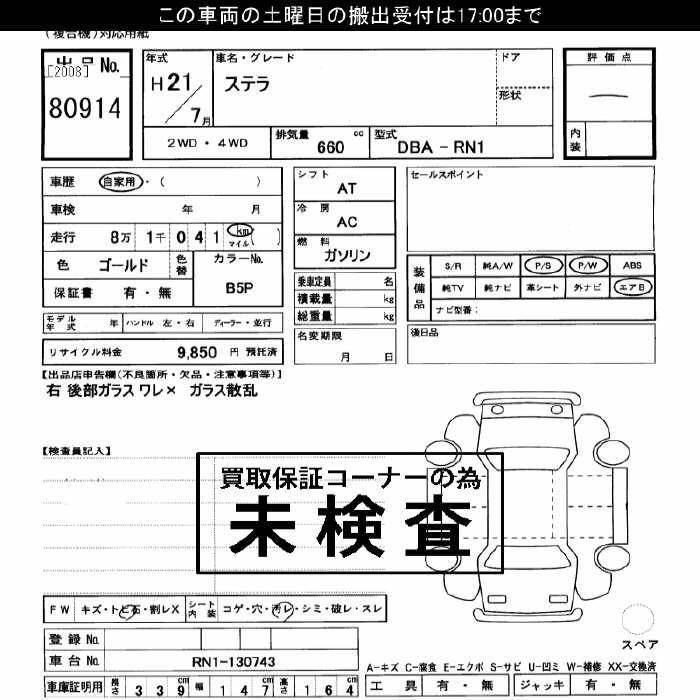 この車両の土曜日の搬出受付は17:00まで
(複合機)対応用紙
出品No.
[2008]
80914
年式
H21/7月
車名・グレード
ステラ
ドア
形状
評価点
内装
2WD・4WD
排気量 660 cc
型式 DBA-RN1
車歴 自家用・( )
車検 年 月
走行 8万 1千 0 4 1 km マイル ( )
色 ゴールド 色替
カラーNo.
B5P
保証書 有・無
シフト
AT
冷房
AC
燃料
ガソリン
乗車定員 名
積載量 kg
総重量 kg
セールスポイント
装備品
S/R 純A/W P/S P/W ABS
純TV 純ナビ 革シート 外ナビ エアB
ナビ型番:
モデル年式 年 ハンドル 左・右 ディーラー・並行
名変期限
月 日
後日品
リサイクル料金 9,850 円 預託済
【出品店申告欄(不良箇所・欠品・注意事項等)】
右 後部ガラス ワレ× ガラス散乱
【検査員記入】
買取保証コーナーの為
未検査
FW キズ・トビ石・割レX シート内装 コゲ・穴・汚レ・シミ・破レ・スレ
登録No.
車台No. RN1-130743
車庫証明用 長さ 339cm 幅 147cm 高さ 164cm
スペア
A-キズ C-腐食 E-エクボ S-サビ U-凹ミ W-補修 XX-交換済
工具 有・無 ジャッキ 有・無